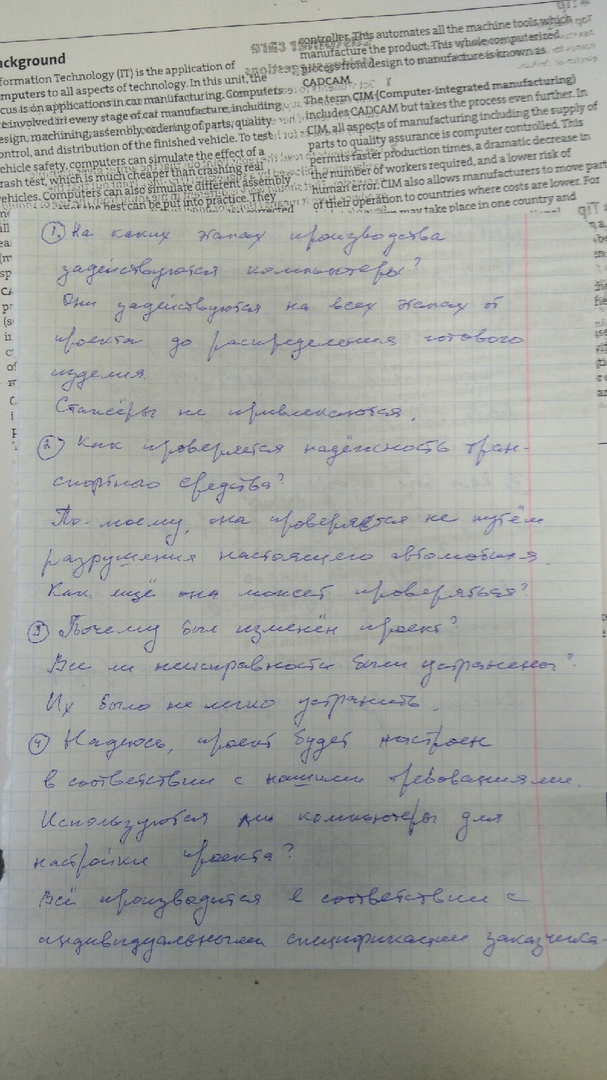 ackground
formation Technology (IT) is the application of
mputers to all aspects of technology. In this unit, the
cus is on applications in car manufacturing. Computers
re involved in every stage of car manufacture, including
esign, machining, assembly, ordering of parts, quality
ontrol, and distribution of the finished vehicle. To test
vehicle safety, computers can simulate the effect of a
rash test, which is much cheaper than crashing real
vehicles. Computers can also simulate different assembly
best can be put into practice. They
controller. This automates all the machine tools which
manufacture the product. This whole computerized
process from design to manufacture is known as
CADCAM.
The term CIM (Computer-integrated manufacturing)
includes CADCAM but takes the process even further. In
CIM, all aspects of manufacturing including the supply of
parts to quality assurance is computer controlled. This
permits faster production times, a dramatic decrease in
the number of workers required, and a lower risk of
human error. CIM also allows manufacturers to move part
of their operation to countries where costs are lower. For
may take place in one country and
1. На каких этапах производства
задействуются компьютеры?
Они задействуются на всех этапах от
проекта до распределения готового
изделия.
Стажёры не привлекаются.
2 Как проверяется надёжность тран-
спортного средства?
По-моему, она проверяется не путём
разрушения настоящего автомобиля.
Как ещё она может проверяться?
3 Почему был изменён проект?
Все ли неисправности были устранены?
Их было не легко устранить.
4 Надеюсь, проект будет настроен
в соответствии с нашими требованиями.
Используются ли компьютеры для
настройки проекта?
Всё производится в соответствии с
индивидуальными спецификациями заказчика.